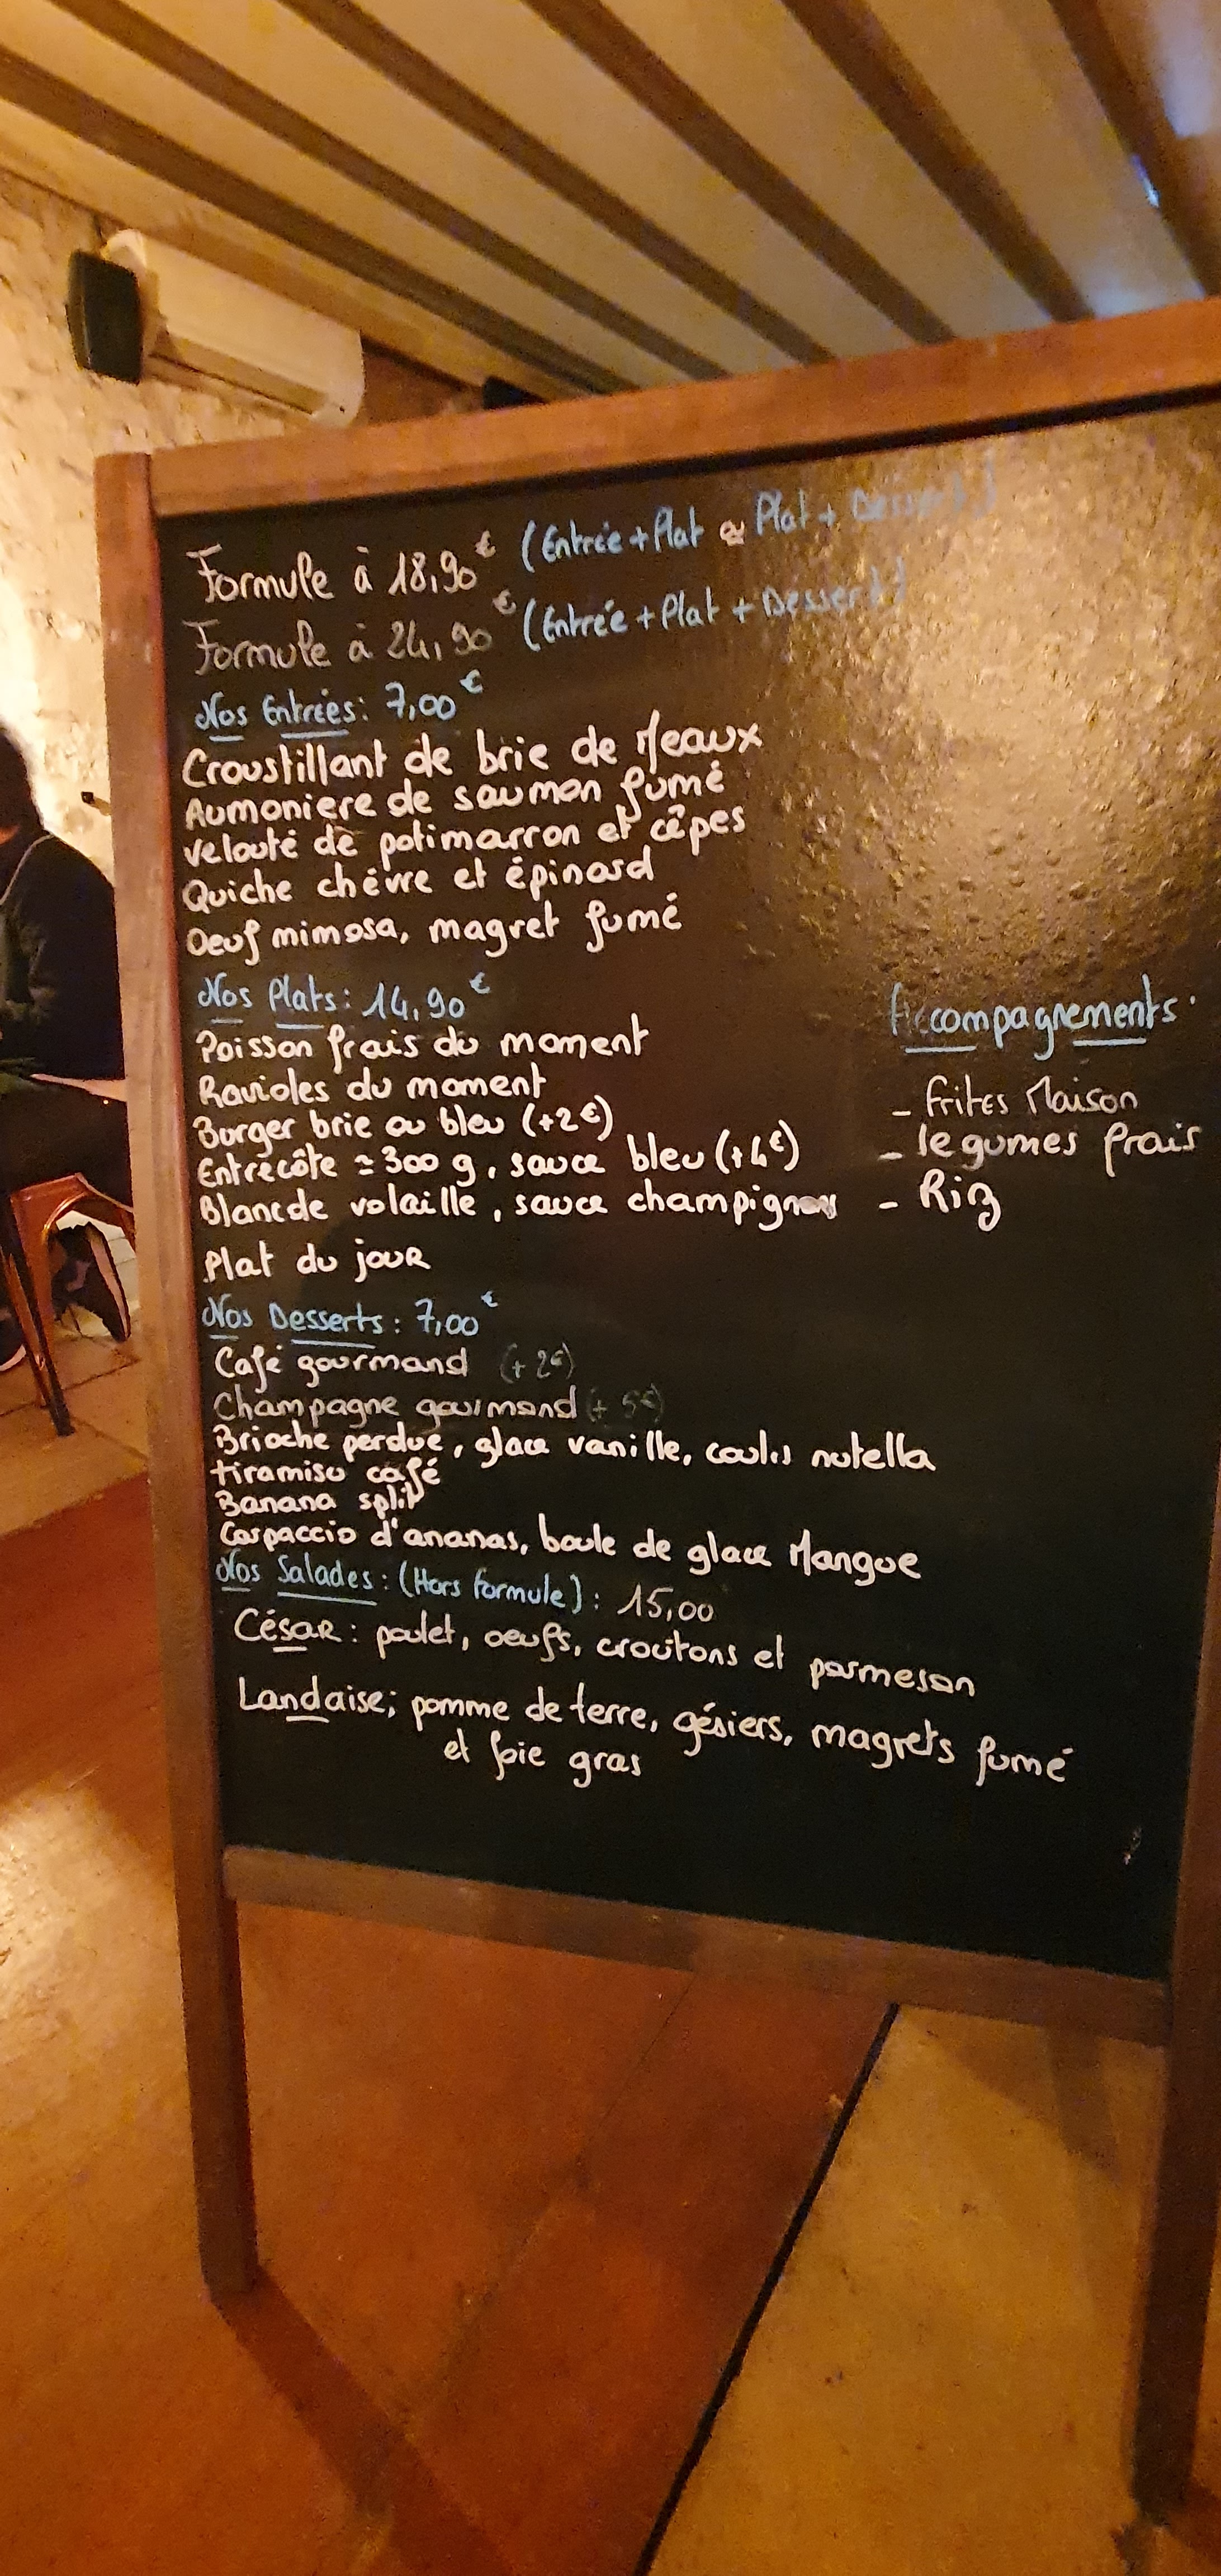 Formule à 18,90€ (Entrée + Plat ou Plat + Dessert)
Formule à 24,90€ (Entrée + Plat + Dessert)
Nos Entrées: 7,00€
Croustillant de brie de Meaux
Aumoniere de saumon fumé
Velouté de potimarron et cêpes
Quiche chévre et épinard
Oeuf mimosa, magret fumé
Nos Plats: 14,90€
Poisson frais du moment
Ravioles du moment
Burger brie ou bleu (+2€)
Entrecôte ≃ 300 g, sauce bleu (+4€)
Blanc de volaille, sauce champignons
Plat du jour
Accompagnements:
- frites Maison
- legumes frais
- Riz
Nos Desserts: 7,00€
Café gourmand (+2€)
Champagne gourmand (+5€)
Brioche perdue, glace vanille, coulis nutella
tiramisu café
Banana split
Carpaccio d'ananas, boule de glace Mangue
Nos Salades: (Hors formule): 15,00
César: poulet, oeufs, croûtons et parmesan
Landaise; pomme de terre, gésiers, magrets fumé
et foie gras